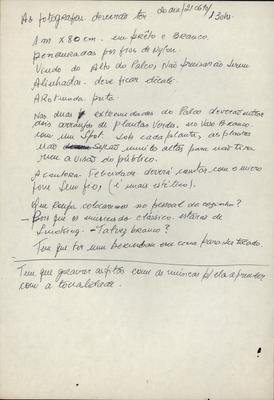 As fotografias deverão ter
do dia 21
1m x 80cm. em prêto e branco
penduradas por fios de nylon.
Vindo do Alto do Palco, Não precisarão serem
Alinhadas. deve ficar décalé.
A Rotunda preta
Nas duas extremidades do Palco deverão
dois arranjos de plantas Verdes, no Vaso Branco
com um Spot. sob cada planta, as plantas
não muito altas para não tirar
a visão do público.
A cantora deverá cantar com o micro
fone sem fio, (é mais estético).
Que Roupa colocaremos no pessoal da cozinha?
— Pois que os músicos do clássico estarão de
Smoking. — Talvez branco?
Tem que ter um
Tem que gravar as fitas com as músicas p/ ela aprender
com a tonalidade.